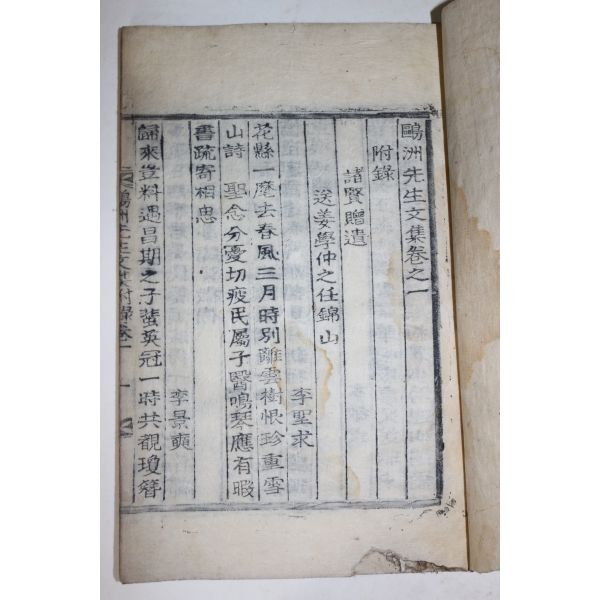 鷗洲先生文集卷之一
附錄
諸賢贈遺
送姜學仲之任錦山
李聖求
花縣一麾去春風三月時別離雲樹恨珍重雪
山詩 聖念分憂切疲民屬子醫鳴琴應有暇
書疏寄相思
李景奭
歸來豈料遇昌期之子蜚英冠一時共覩瓊簪
鷗洲先生文集附錄卷一